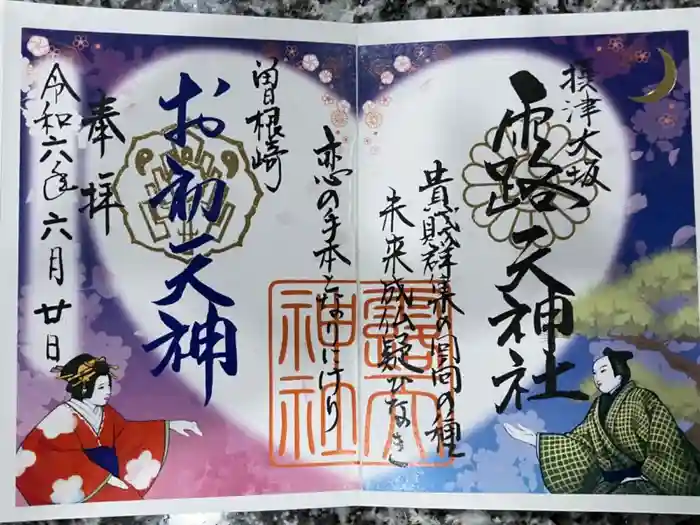 摂津大坂
露天神社
貴賎群集の回向の種
未来成仏疑ひなき
恋の手本となりにけり
曽根崎
お初天神
奉拝
令和六年六月廿日
露天
神社